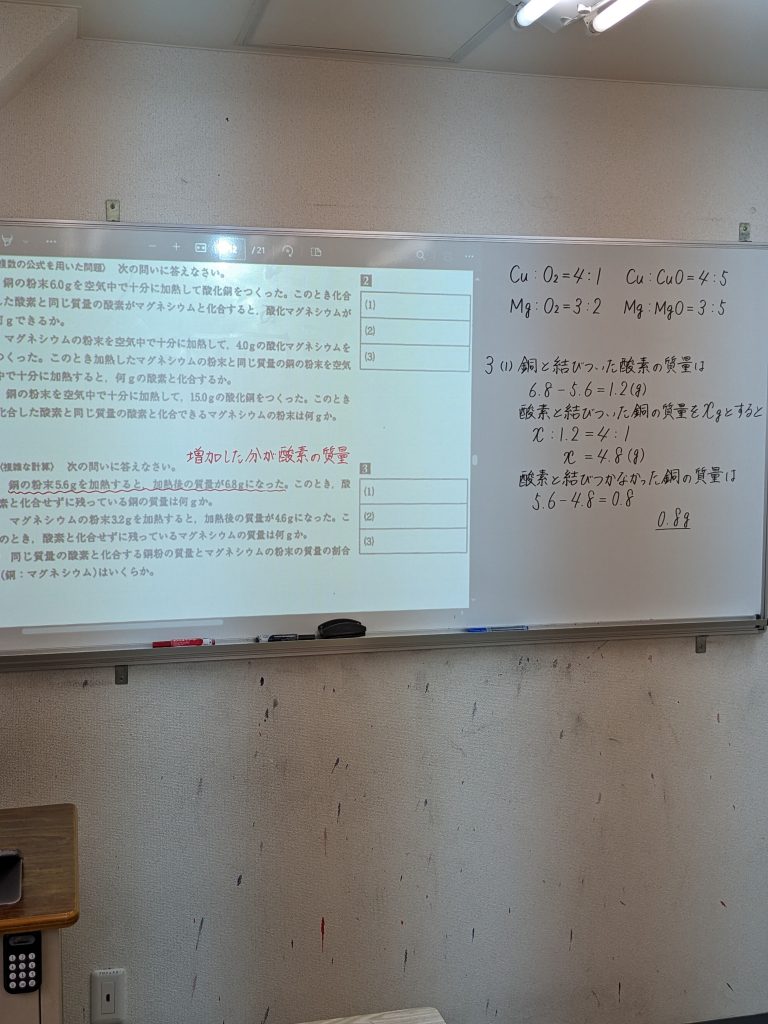 /21
複数の公式を用いた問題〉 次の問いに答えなさい。
銅の粉末6.0gを空気中で十分に加熱して酸化銅をつくった。このとき化合
した酸素と同じ質量の酸素がマグネシウムと化合すると、酸化マグネシウムが
何gできるか。
マグネシウムの粉末を空気中で十分に加熱して、4.0gの酸化マグネシウムを
つくった。このとき加熱したマグネシウムの粉末と同じ質量の銅の粉末を空気
中で十分に加熱すると、何gの酸素と化合するか。
銅の粉末を空気中で十分に加熱して、15.0gの酸化銅をつくった。このとき
化合した酸素と同じ質量の酸素と化合できるマグネシウムの粉末は何gか。
2
(1)
(2)
(3)
増加した分が酸素の質量
〈複雑な計算〉 次の問いに答えなさい。
銅の粉末5.6gを加熱すると、加熱後の質量が6.8gになった。このとき、酸
素と化合せずに残っている銅の質量は何gか。
マグネシウムの粉末3.2gを加熱すると、加熱後の質量が4.6gになった。こ
のとき、酸素と化合せずに残っているマグネシウムの質量は何gか。
同じ質量の酸素と化合する銅粉の質量とマグネシウムの粉末の質量の割合
(銅：マグネシウム)はいくらか。
3
(1)
(2)
(3)
Cu : O₂ = 4 : 1 Cu : CuO = 4 : 5
Mg : O₂ = 3 : 2 Mg : MgO = 3 : 5
3 (1) 銅と結びついた酸素の質量は
6.8 - 5.6 = 1.2 (g)
酸素と結びついた銅の質量をxgとすると
x : 1.2 = 4 : 1
x = 4.8 (g)
酸素と結びつかなかった銅の質量は
5.6 - 4.8 = 0.8
0.8g